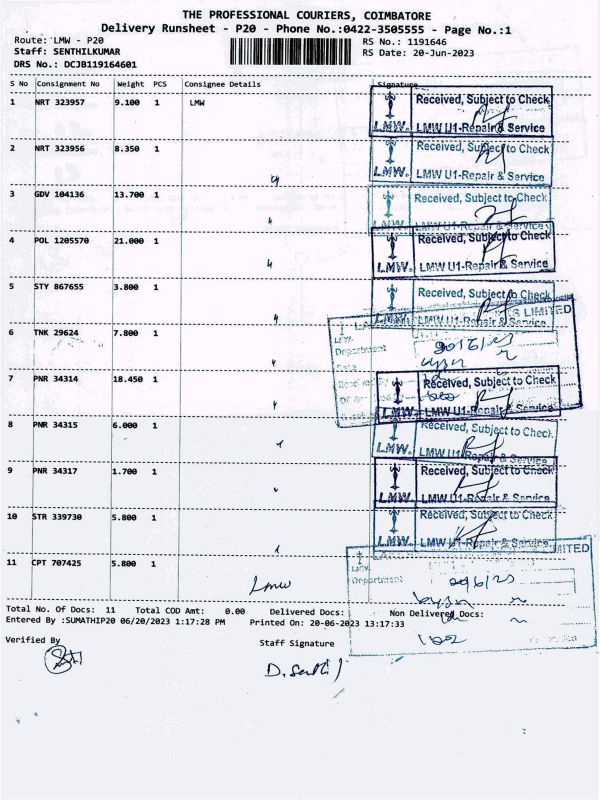 THE PROFESSIONAL COURIERS, COIMBATORE
Delivery Runsheet - P20 - Phone No.:0422-3505555 - Page No.:1
Route: LMW - P20 RS No.: 1191646
Staff: SENTHILKUMAR RS Date: 20-Jun-2023
DRS No.: DCJB119164601
S No Consignment No Weight PCS Consignee Details Signature
1 NRT 323957 9.100 1 LMW
Received, Subject to Check
LMW. LMW U1-Repair & Service
2 NRT 323956 8.350 1
Received, Subject to Check
LMW. LMW U1-Repair & Service
3 GDV 104136 13.700 1
Received, Subject to Check
LMW U1-Repair & Service
4 POL 1205570 21.000 1
Received, Subject to Check
LMW. LMW U1-Repair & Service
5 STY 867655 3.800 1
Received, Subject to Check
LMW U1-Repair & Service
LIMITED
6 TNK 29624 7.800 1
Department
20/6/23
7 PNR 34314 18.450 1
Received, Subject to Check
LMW. LMW U1-Repair & Service
8 PNR 34315 6.000 1
Received, Subject to Check
LMW. LMW U1-Repair & Service
9 PNR 34317 1.700 1
Received, Subject to Check
LMW. LMW U1-Repair & Service
10 STR 339730 5.800 1
Received, Subject to Check
LMW. LMW U1-Repair & Service
LIMITED
11 CPT 707425 5.800 1
Lmw
Department
20/6/23
Total No. Of Docs: 11 Total COD Amt: 0.00 Delivered Docs: Non Delivered Docs:
Entered By :SUMATHIP20 06/20/2023 1:17:28 PM Printed On: 20-06-2023 13:17:33
Verified By Staff Signature